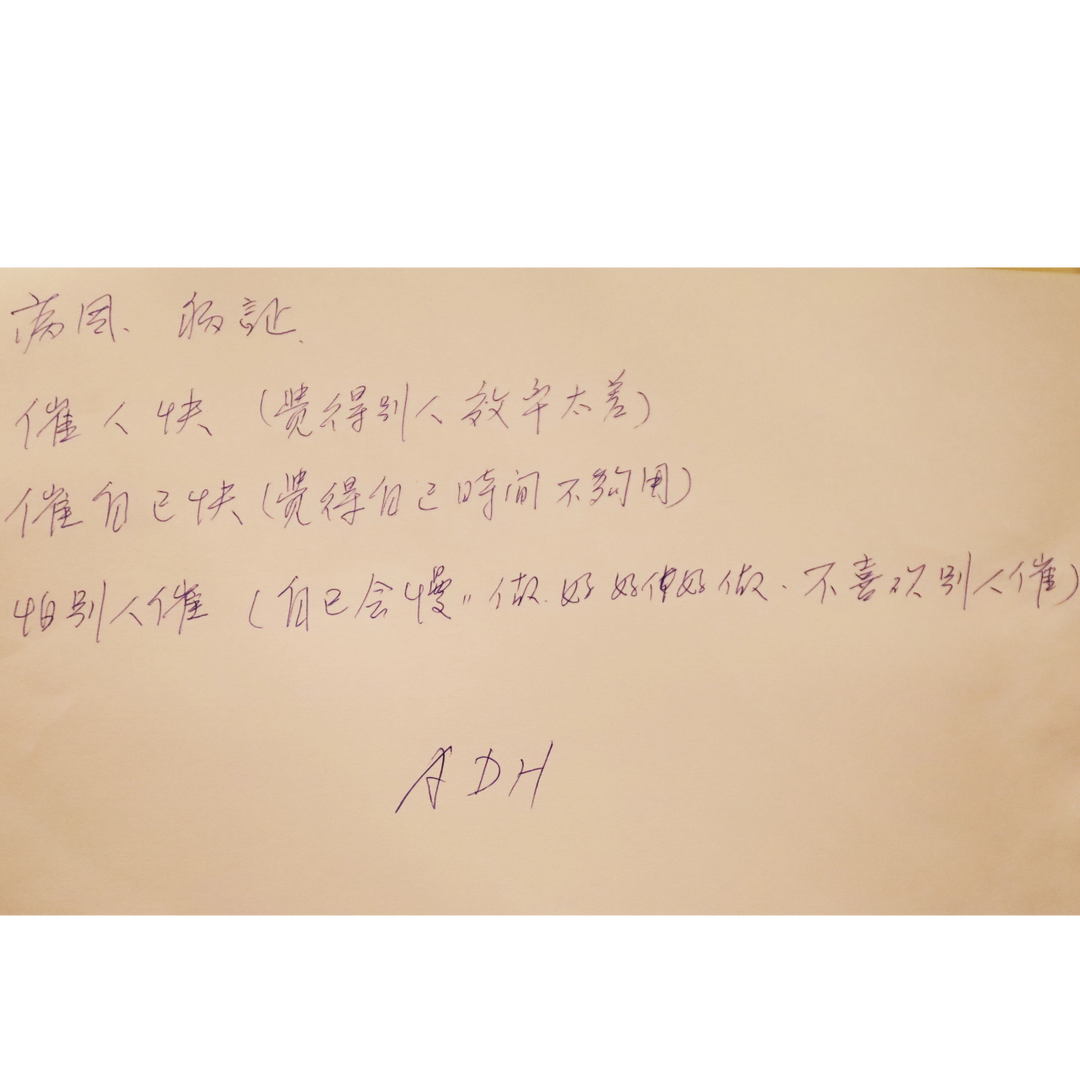 病因、病証.
催人快 (覺得別人效率太差)
催自己快 (覺得自己時間不夠用)
怕別人催 (自己会慢〃做.好好做.不喜欢別人催)
ADH